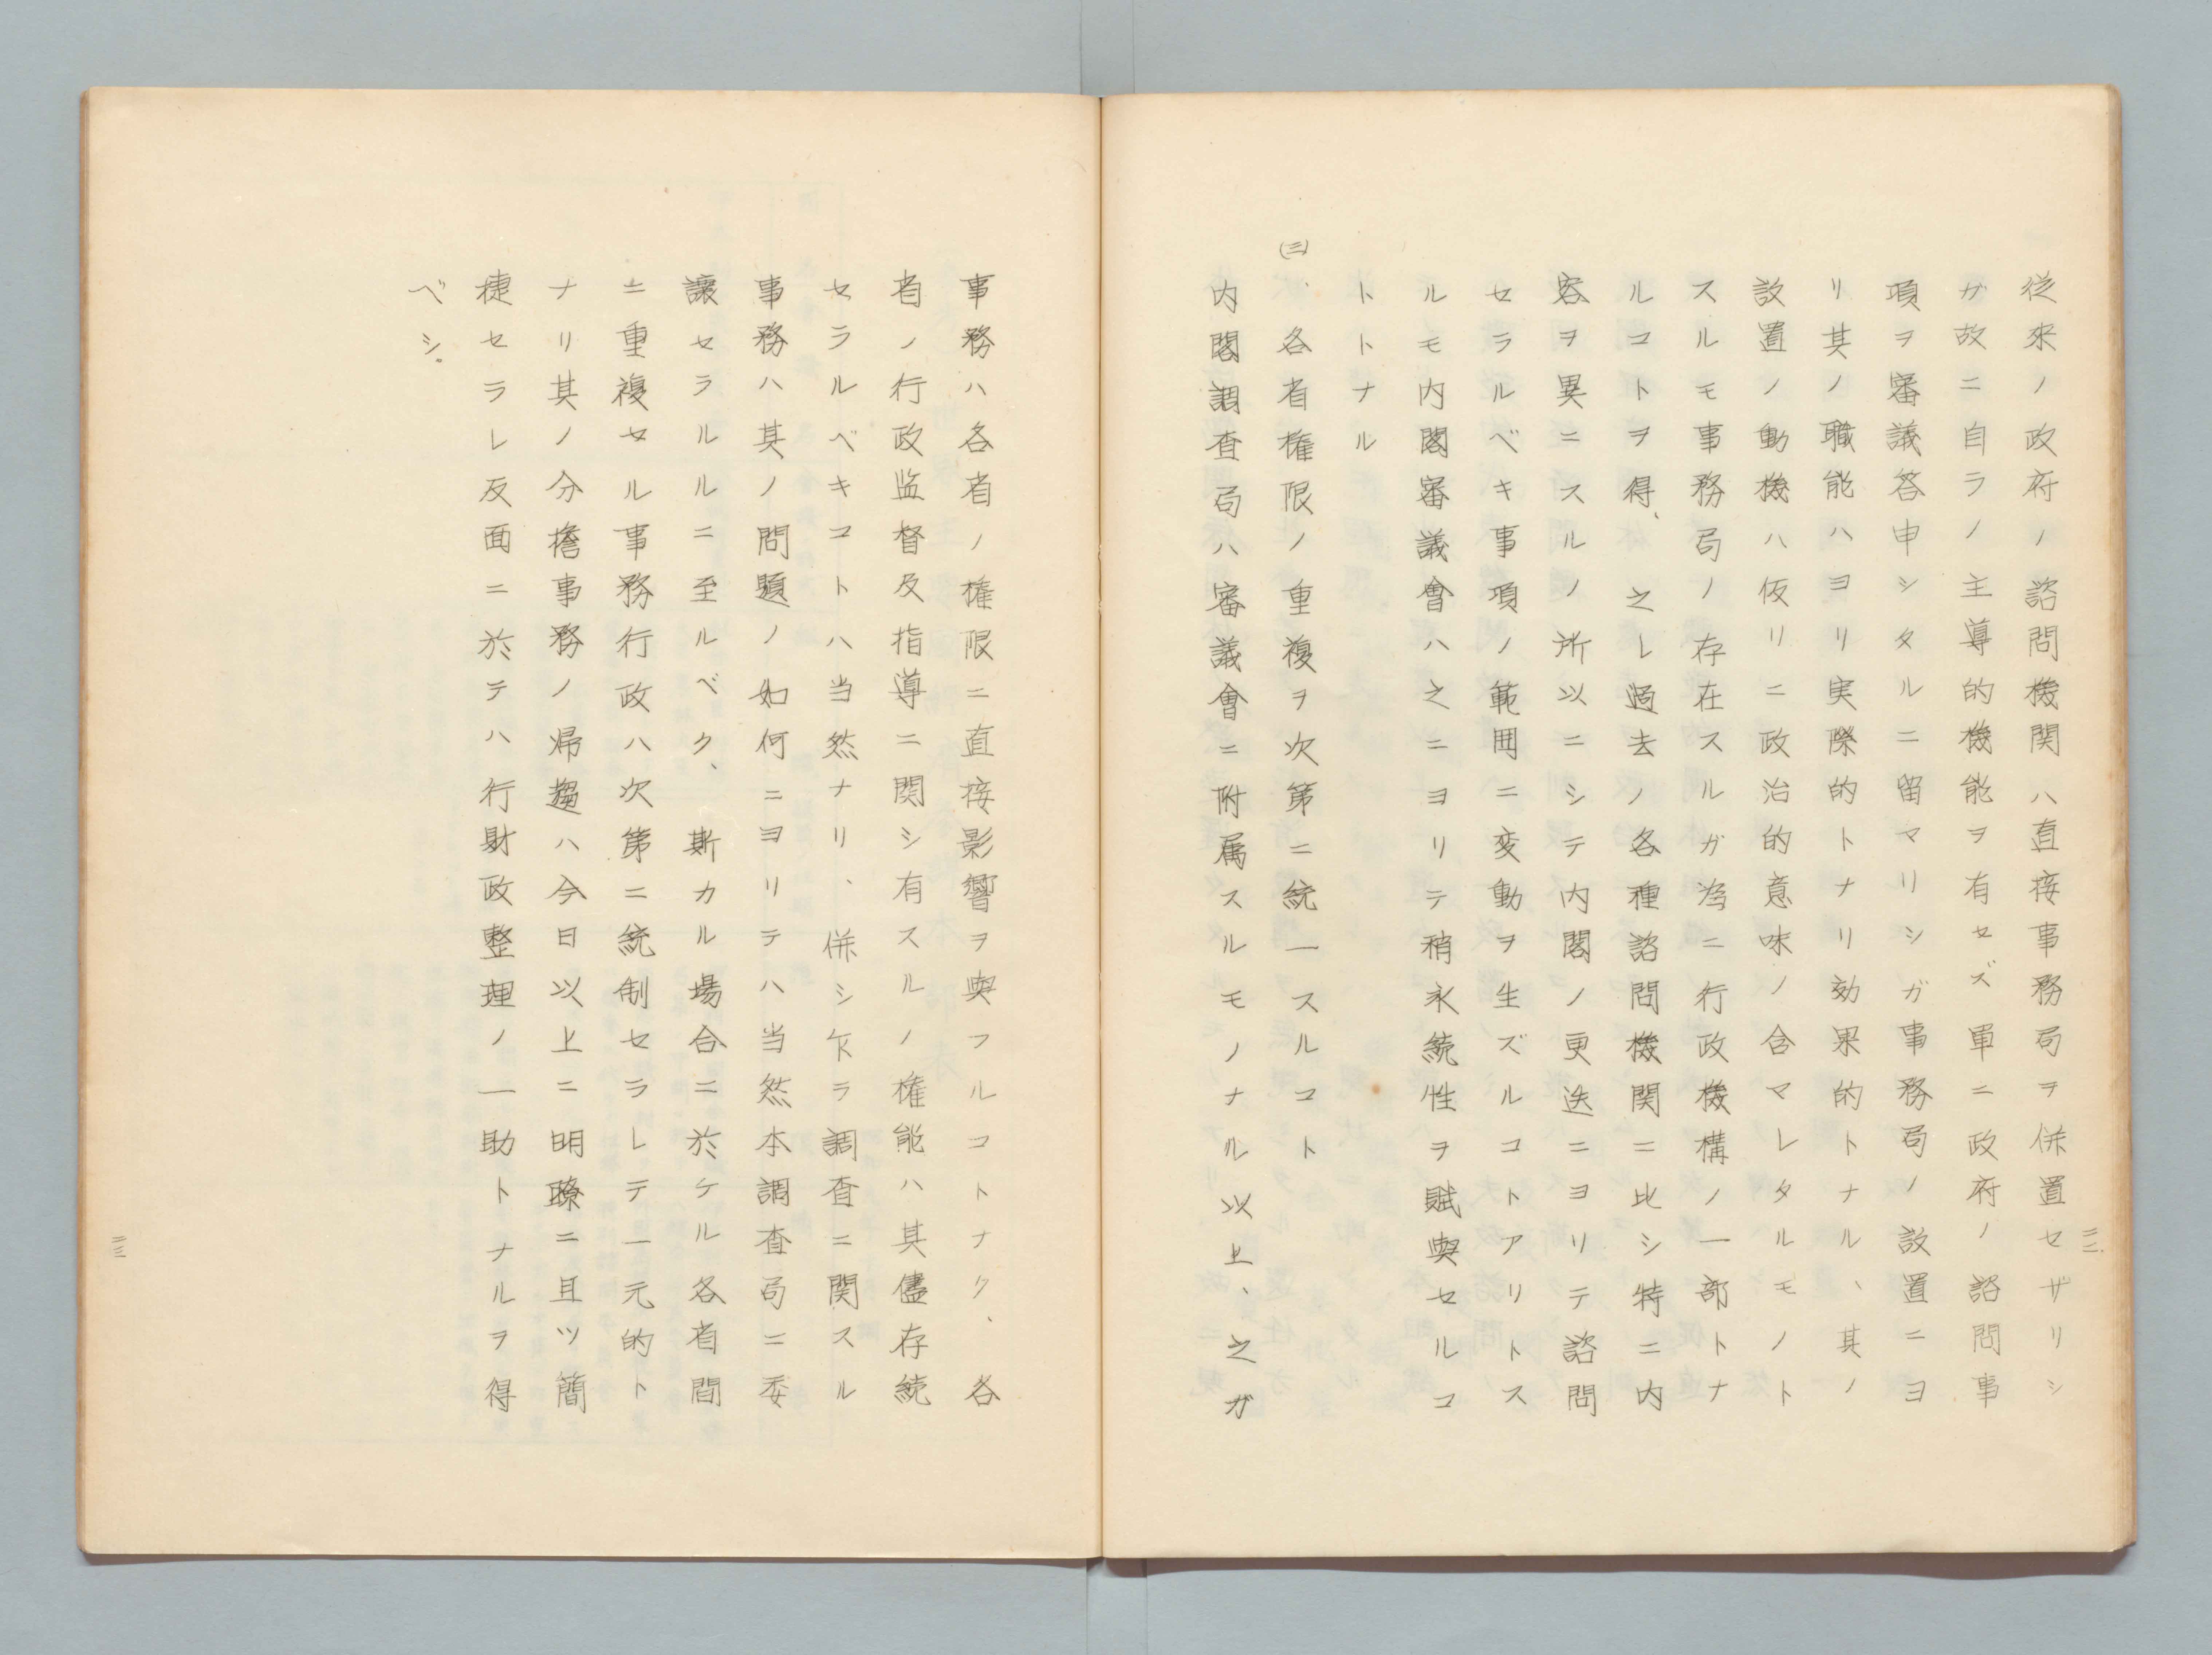 従来ノ政府ノ諮問機関ハ直接事務局ヲ併置セザリシ
ガ故ニ自ラノ主導的機能ヲ有セズ単ニ政府ノ諮問事
項ヲ審議答申シタルニ留マリシガ事務局ノ設置ニヨ
リ其ノ職能ハヨリ実際的トナリ効果的トナル、其ノ
設置ノ動機ハ仮リニ政治的意味ノ含マレタルモノト
スルモ事務局ノ存在スルガ為ニ行政機構ノ一部トナ
ルコトヲ得、之レ過去ノ各種諮問機関ニ比シ特ニ内
容ヲ異ニスルノ所以ニシテ内閣ノ更迭ニヨリテ諮問
セラルベキ事項ノ範囲ニ変動ヲ生ズルコトアリトス
ルモ内閣審議會ハ之ニヨリテ稍永続性ヲ賦與セルコ
トトナル
(三)、各省権限ノ重複ヲ次第ニ統一スルコト
内閣調査局ハ審議會ニ附属スルモノナル以上、之ガ
二二、
事務ハ各省ノ権限ニ直接影響ヲ與フルコトナク、各
省ノ行政監督及指導ニ関シ有スルノ権能ハ其儘存続
セラルベキコトハ当然ナリ、併シ乍ラ調査ニ関スル
事務ハ其ノ問題ノ如何ニヨリテハ当然本調査局ニ委
譲セラルルニ至ルベク、斯カル場合ニ於ケル各省間
ニ重複セル事務行政ハ次第ニ統制セラレテ一元的ト
ナリ其ノ分擔事務ノ帰趨ハ今日以上ニ明瞭ニ且ツ簡
捷セラレ反面ニ於テハ行財政整理ノ一助トナルヲ得
ベシ。
二三